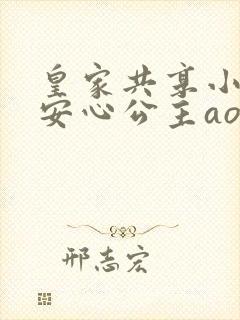 皇家共享小
安心公主ao
邢志宏